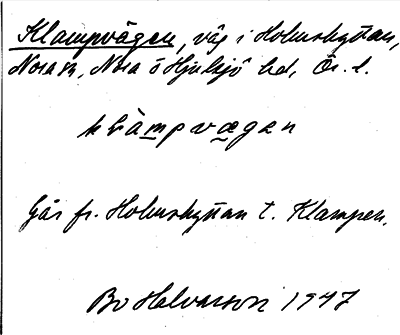 Klampvägen, väg i Holmshyttan,
Nora sn, Nora o Hjulsjö bd, Ör. l.
klàmpvægan
Går fr. Holmshyttan t. Klampen.
Bo Halvarson 1947